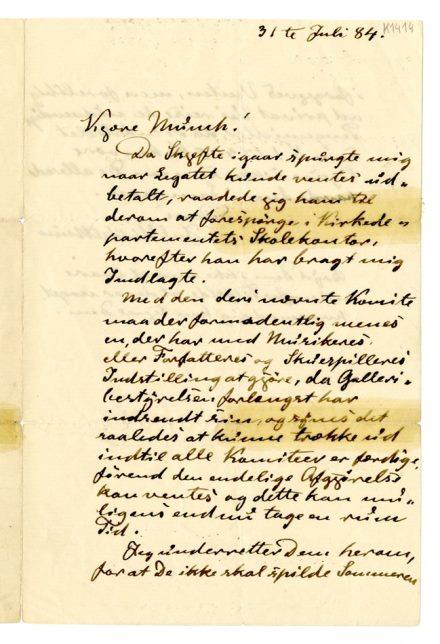 K1414
31te Juli 84.
Kjære Münch!
Da Skjefte igaar spurgte mig
naar Legatet kunde ventes ud-
betalt, raadede jeg ham til
derom at forespörge i Kirkede-
partementets Skolekontor,
hvorefter han har bragt mig
Indlagte.
Med den deri nævnte Komite
maa der formodentlig menes
en, der har med Musikeres
eller Forfatteres og Skuespilleres
Indstilling at gjøre, da Galleri-
bestyrelsen forlængst har
indsendt sin, og synes det
saaledes at kunne trække ud
indtil alle Komiteer er færdige,
førend den endelige Afgjørelse
kan ventes og dette kan mu-
ligens endnu tage en rum
Tid.
Jeg underretter Dem herom,
for at De ikke skal spilde Sommeren